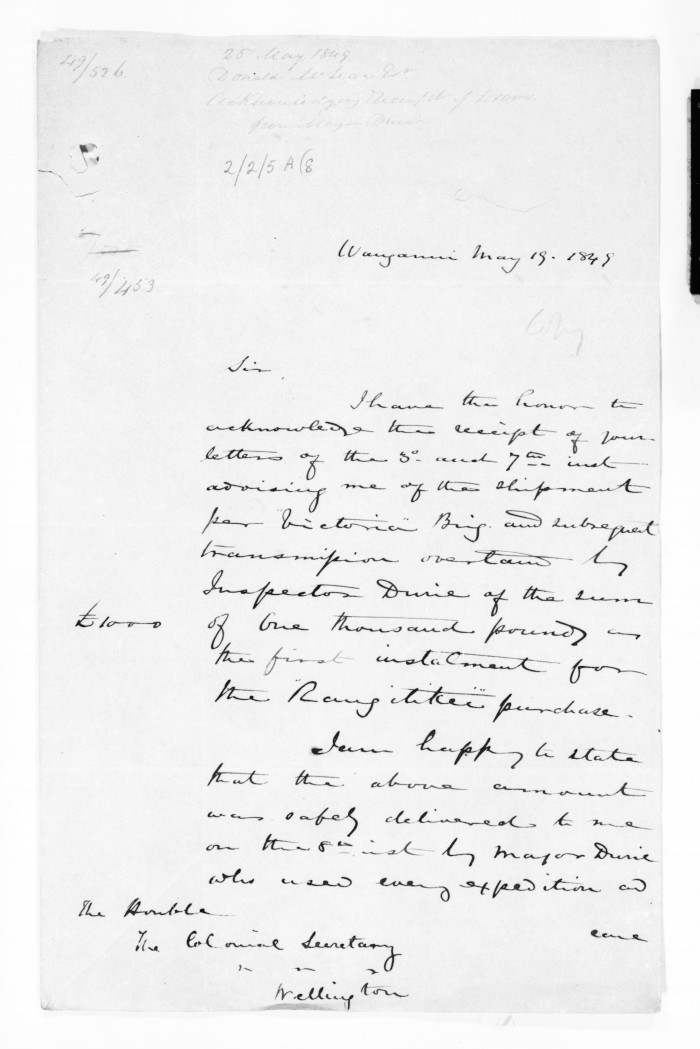 49/526.
25 May 1849
Donald McLean Esq
Acknowledging Receipt of £1000
from Major Durie
2/2/5 A(8
49/453
Wanganui May 19. 1849
Copy
Sir,
I have the honor to
acknowledge the receipt of your
letters of the 3d and 7th inst
advising me of the shipment
per "Victoria" Brig. and subsequent
transmission overland by
Inspector Durie of the sum
£1000 of One thousand pounds as
the first instalment for
the "Rangitikei" purchase.
I am happy to state
that the above amount
was safely delivered to me
on the 8th inst by Major Durie
who used every expedition and
care
The Honble
The Colonial Secretary
Wellington